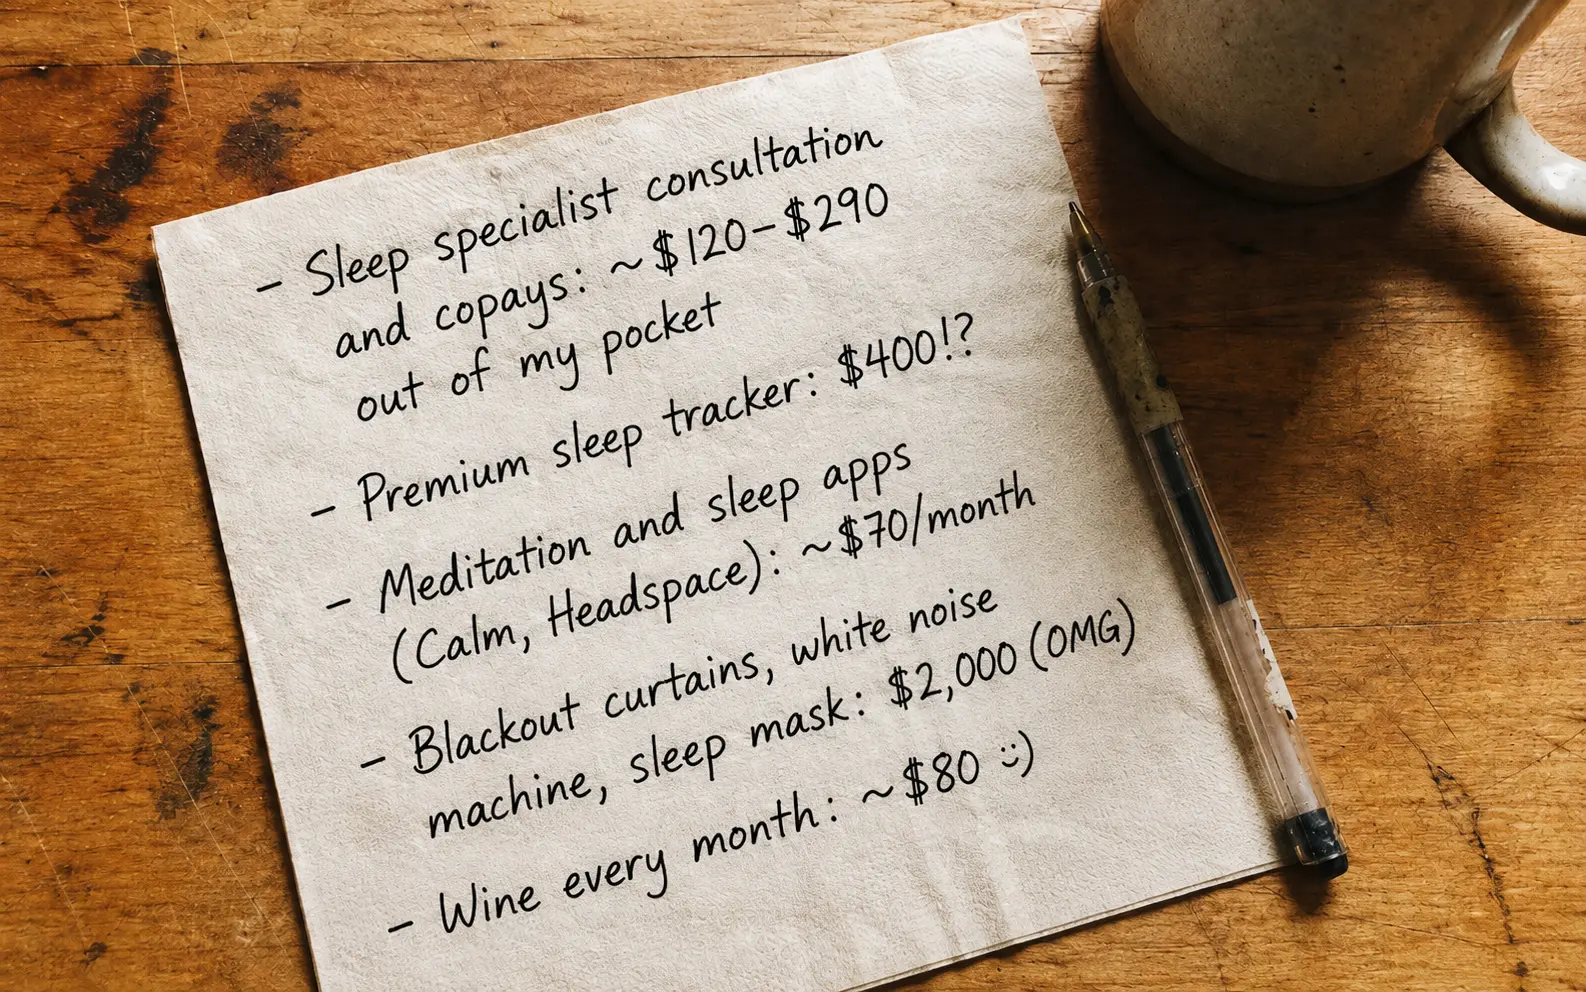 - Sleep specialist consultation
and copays: ~$120-$290
out of my pocket
- Premium sleep tracker: $400!?
- Meditation and sleep apps
(Calm, Headspace): ~$70/month
- Blackout curtains, white noise
machine, sleep mask: $2,000 (OMG)
- Wine every month: ~$80 :)